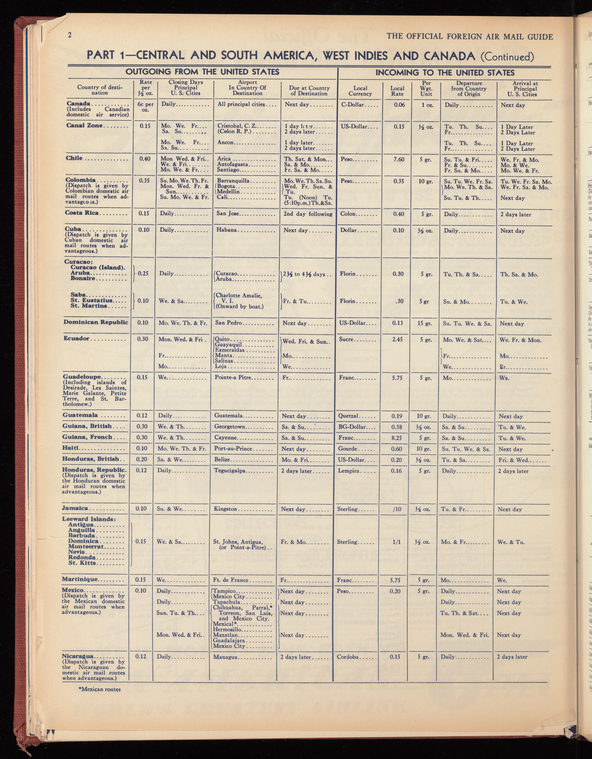 2 THE OFFICIAL FOREIGN AIR MAIL GUIDE
PART 1—CENTRAL AND SOUTH AMERICA, WEST INDIES AND CANADA (Continued)
OUTGOING FROM THE UNITED STATES INCOMING TO THE UNITED STATES
Country of desti- nation Rate per ½ oz. Closing Days Principal U. S. Cities Airport In Country Of Destination Due at Country of Destination Local Currency Local Rate Per Wgt. Unit Departure from Country of Origin Arrival at Principal U. S. Cities
Canada 6c per oz. Daily All principal cities Next day C-Dollar 0.06 1 oz. Daily Next day
(Includes Canadian
domestic air service)
Canal Zone 0.15 Mo. We. Fr. Cristobal, C. Z. 1 day US-Dollar 0.15 ½ oz. Tu. Th. Su. 1 Day Later
Sa. Su. (Colon R. P.) 2 days later Fr. 2 Days Later
Mo. We. Fr. Ancon 1 day later Tu. Th. Su. 1 Day Later
Sa. Su. 2 days later Fr. 2 Days Later
Chile 0.40 Mon. Wed. & Fri. Arica Th. Sat. & Mon. Peso 7.60 5 gr. Su. Tu. & Fri. We. Fr. & Mo.
We. & Fri. Antofagasta Sa. & Mo. Fr. & Su. Mo. & We.
Mo. We. & Fr. Santiago Fr. Sa. & Mo. Fr. Su. & Mo. Mo. We. & Fr.
Colombia 0.35 Su. Mo. We. Th. Fr. Barranquilla Mo. We. Th. Sa. Su. Peso 0.35 10 gr. Su. Tu. We. Fr. Sa. Tu. We. Fr. Sa. Mo.
(Dispatch is given by Mon. Wed. Fr. & Bogota Wed. Fr. Sun. & Mo. We. Th. & Sa. We. Fr. Sa. & Mo.
Colombian domestic air Sun. Medellin Tu.
mail routes when ad- Su. Mo. We. & Fr. Cali Tu. (Noon) Tu. Su. Tu. & Th. Next day
vantageous.) (5:10p.m.)Th.&Sa.
Costa Rica 0.15 Daily San Jose 2nd day following Colon 0.40 5 gr. Daily 2 days later
Cuba 0.10 Daily Habana Next day Dollar 0.10 ½ oz. Daily Next day
(Dispatch is given by
Cuban domestic air
mail routes when ad-
vantageous.)
Curacao:
Curacao (Island).
Aruba 0.25 Daily Curacao 2½ to 4½ days Florin 0.30 5 gr. Tu. Th. & Sa. Th. Sa. & Mo.
Bonaire Aruba
Saba Charlotte Amalie,
St. Eustatius 0.10 We. & Sa. V. I. Fr. & Tu. Florin .30 5 gr Su. & Mo. Tu. & We.
St. Martins (Onward by boat.)
Dominican Republic 0.10 Mo. We. Th. & Fr. San Pedro Next day US-Dollar 0.11 15 gr. Su. Tu. We. & Sa. Next day
Ecuador 0.30 Mon. Wed. & Fri. Quito Wed. Fri. & Sun. Sucre 2.45 5 gr. Mo. We. & Sat. We. Fr. & Mon.
Guayaquil
Esmeraldas
Fr. Manta Mo. Fr. Mo.
Salinas
Mo. Loja We. We. Fr.
Guadeloupe 0.15 We. Pointe-a Pitre Fr. Franc 5.75 5 gr. Mo. We.
(Including islands of
Desirade, Les Saintes,
Marie Galante, Petite
Terre, and St. Bar-
tholomew.)
Guatemala 0.12 Daily Guatemala Next day Quetzal 0.19 10 gr. Daily Next day
Guiana, British 0.30 We. & Th. Georgetown Sa. & Su. BG-Dollar 0.58 ½ oz. Sa. & Su. Tu. & We.
Guiana, French 0.30 We. & Th. Cayenne Sa. & Su. Franc 8.25 5 gr. Sa. & Su. Tu. & We.
Haiti 0.10 Mo. We. Th. & Fr. Port-au-Prince Next day Gourde 0.60 10 gr. Su. Tu. We. & Sa. Next day
Honduras, British 0.20 Sa. & We. Belize Mo. & Fri. US-Dollar 0.20 ½ oz. Tu. & Sa. Fri. & Wed.
Honduras, Republic. 0.12 Daily Tegucigalpa 2 days later Lempira 0.16 5 gr. Daily 2 days later
(Dispatch is given by
the Honduran domestic
air mail routes when
advantageous.)
Jamaica 0.10 Su. & We. Kingston Next day Sterling /10 ½ oz. Tu. & Fr. Next day
Leeward Islands:
Antigua
Anguilla
Barbuda
Dominica 0.15 We. & Sa. St. Johns, Antigua, Fr. & Mo. Sterling 1/1 ½ oz. Mo. & Fr. We. & Tu.
Montserrat (or Point-a-Pitre)
Nevis
Redonda
St. Kitts
Martinique 0.15 We. Ft. de France Fr. Franc 5.75 5 gr. Mo. We.
Mexico 0.10 Daily Tampico Next day Peso 0.20 5 gr. Daily Next day
(Dispatch is given by Mexico City
the Mexican domestic Daily Tapachula Next day Daily Next day
air mail routes when Chihuahua, Parral,*
advantageous.) Sun. Tu. & Th. Torreon, San Luis, Next day Tu. Th. & Sat. Next day
and Mexico City.
Mexical*
Hermosillo
Mon. Wed. & Fri. Mazatlan Next day Mon. Wed. & Fri. Next day
Guadalajara
Mexico City
Nicaragua 0.12 Daily Managua 2 days later Cordoba 0.15 5 gr. Daily 2 days later
(Dispatch is given by
the Nicaraguan do-
mestic air mail routes
when advantageous.)
*Mexican routes